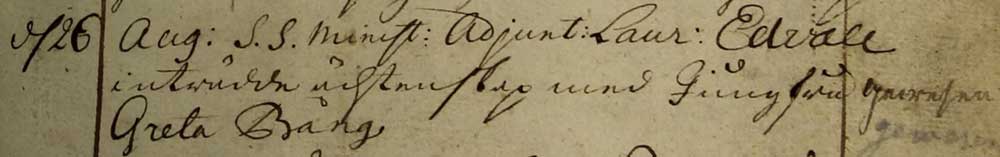 d/26 Aug: S. S. Minist: Adjunt: Laur: Edvall
inträdde ächtenskap med Jungfru
Greta Bäng